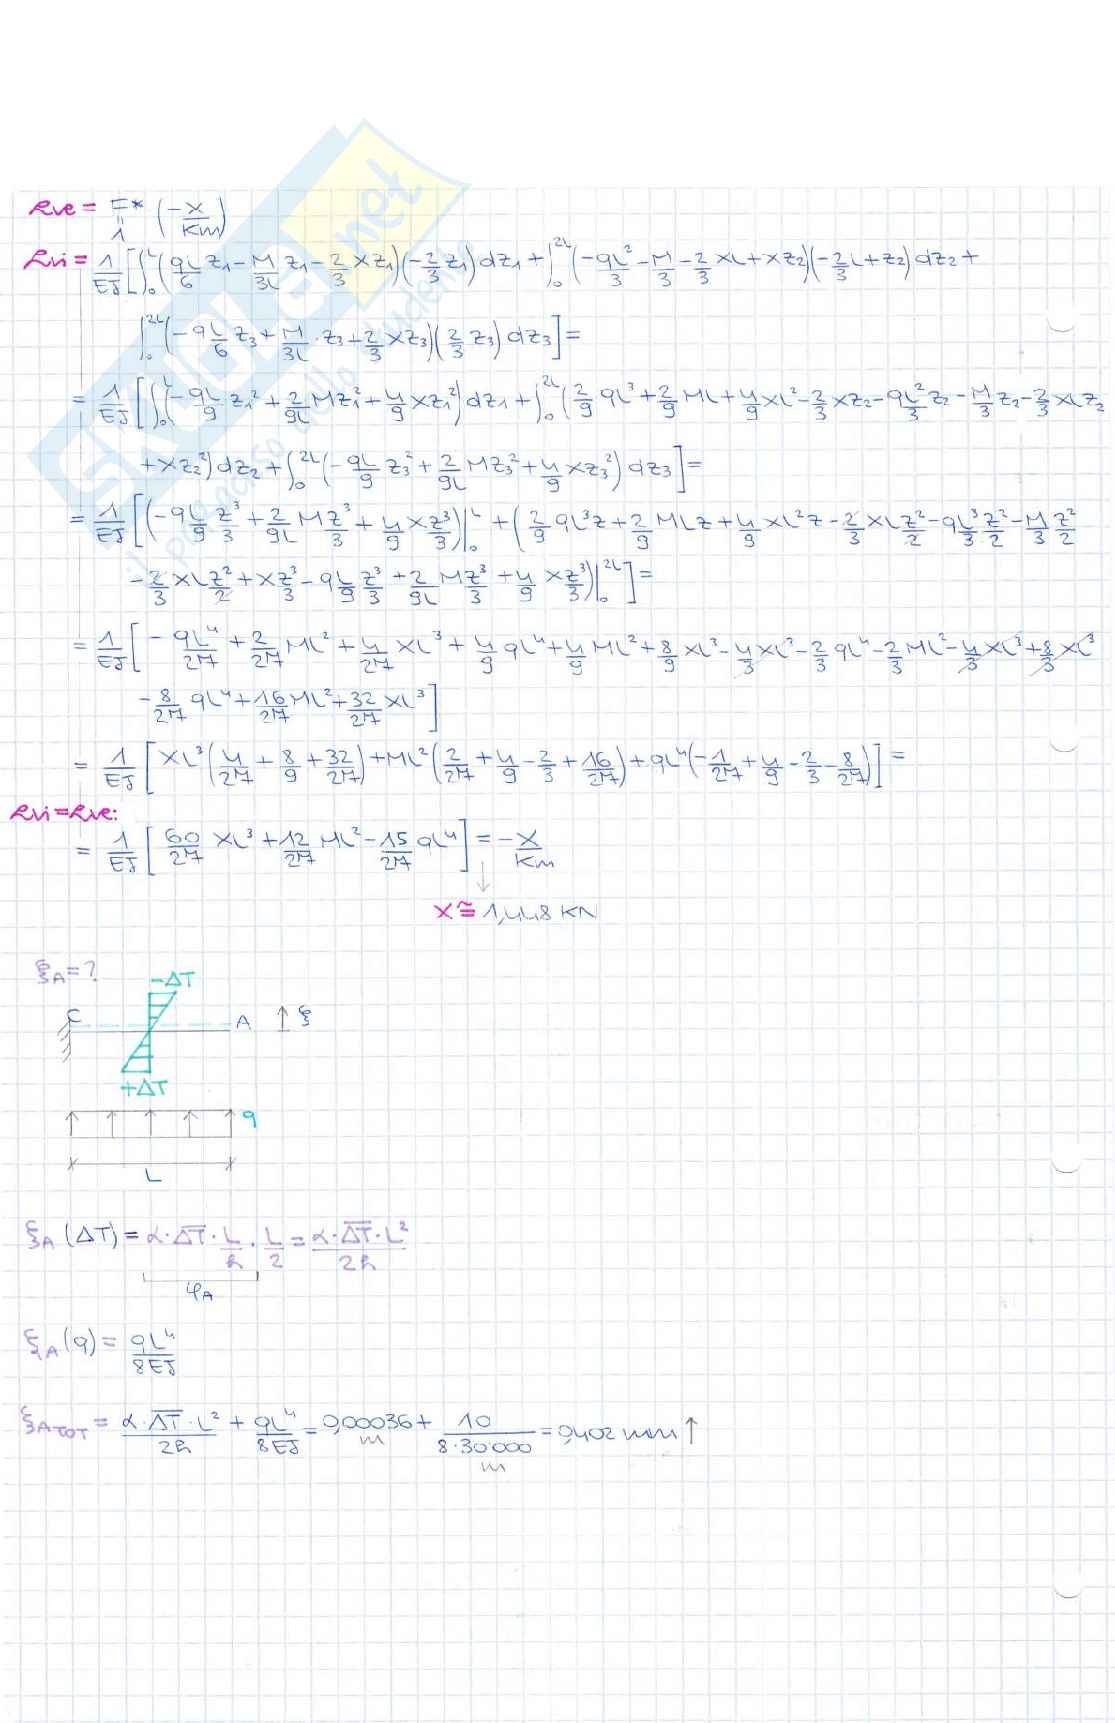 Lve = F* (-x/Km)
"
1
Lvi = 1/EJ [∫₀ᴸ (qL/6 z₁ - M/3L z₁ - 2/3 xz₁)(-2/3 z₁) dz₁ + ∫₀²ᴸ (-qL²/3 - M/3 - 2/3 xL + xz₂)(-2/3 L + z₂) dz₂ +
∫₀²ᴸ (-qL/6 z₃ + M/3L · z₃ + 2/3 xz₃)(2/3 z₃) dz₃] =
= 1/EJ [∫₀ᴸ (-qL/9 z₁² + 2/9L Mz₁² + 4/9 xz₁²) dz₁ + ∫₀²ᴸ (2/9 qL³ + 2/9 ML + 4/9 xL² - 2/3 xz₂ - qL²/3 z₂ - M/3 z₂ - 2/3 xLz₂
+ xz₂²) dz₂ + ∫₀²ᴸ (-qL/9 z₃² + 2/9L Mz₃² + 4/9 xz₃²) dz₃] =
= 1/EJ [(-qL/9 z³/3 + 2/9L M z³/3 + 4/9 x z³/3)|₀ᴸ + (2/9 qL³z + 2/9 MLz + 4/9 xL²z - 2/3 xL z²/2 - qL²/3 z²/2 - M/3 z²/2
- 2/3 xL z²/2 + x z³/3 - qL/9 z³/3 + 2/9L M z³/3 + 4/9 x z³/3)|₀²ᴸ] =
= 1/EJ [-qL⁴/27 + 2/27 ML² + 4/27 xL³ + 4/9 qL⁴ + 4/9 ML² + 8/9 xL³ - 4/3 xL³ - 2/3 qL⁴ - 2/3 ML² - 4/3 xL³ + 8/3 xL³
- 8/27 qL⁴ + 16/27 ML² + 32/27 xL³]
= 1/EJ [xL³(4/27 + 8/9 + 32/27) + ML²(2/27 + 4/9 - 2/3 + 16/27) + qL⁴(-1/27 + 4/9 - 2/3 - 8/27)] =
Lvi = Lve:
= 1/EJ [60/27 xL³ + 12/27 ML² - 15/27 qL⁴] = -x/Km
x ≅ 1,448 KN
ξA = ?
-ΔT
C A ↑ ξ
+ΔT
q
L
ξA (ΔT) = α · ΔT̅ · L/h · L/2 = α · ΔT̅ · L²/2h
φA
ξA (q) = qL⁴/8EJ
ξA TOT = α · ΔT̅ · L²/2h + qL⁴/8EJ = 0,00036 + 10/8·30000 = 0,402 mm ↑
m m
SKUOLA.net